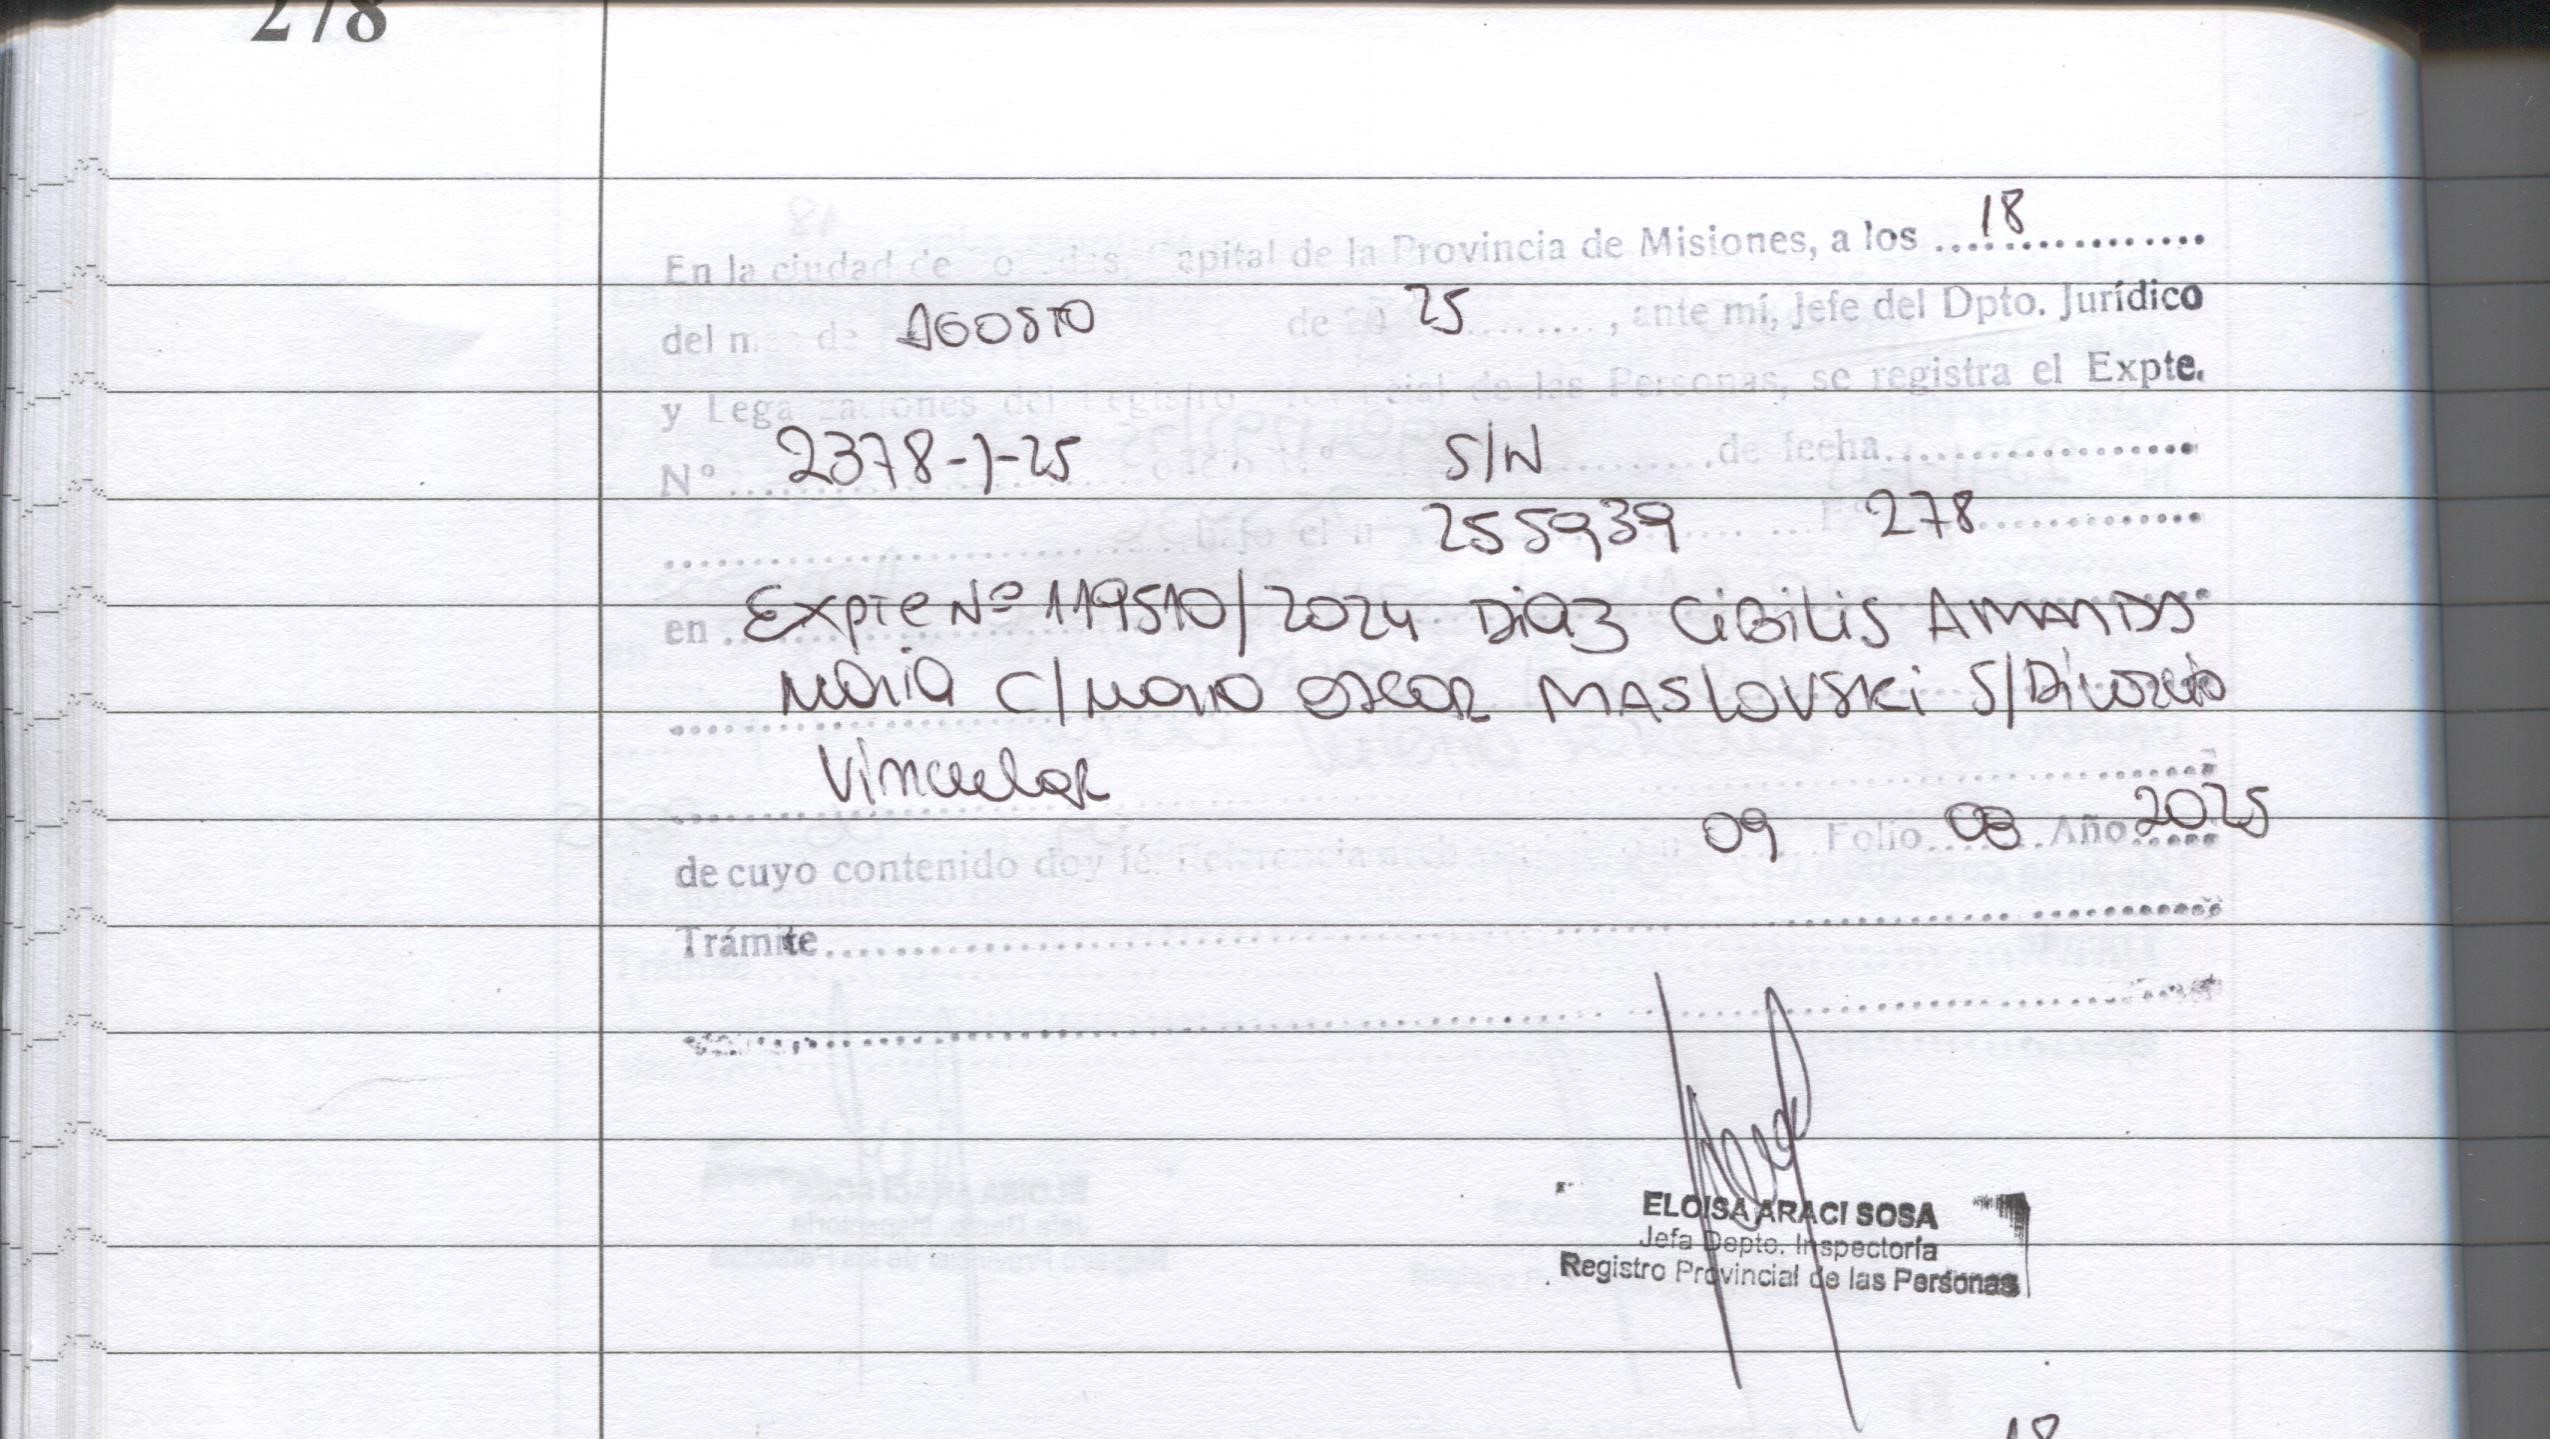 278
En la ciudad de Posadas, Capital de la Provincia de Misiones, a los ... 18 ...
del mes de AGOSTO de 20 25 ..., ante mí, Jefe del Dpto. Jurídico
y Legalizaciones del Registro Provincial de las Personas, se registra el Expte.
N° ... 2378-J-25 S/N ... de fecha ...
... bajo el n° 255939 ... F° 278 ...
en ... Expte Nº 119510/2024 Diaz Cibilis AMANDA
Maria C/ Mario Oscar MASLOVSKi S/Divorcio
Vincular
de cuyo contenido doy fé. Referencia 09 Folio 08 Año 2025
Trámite ...
ELOISA ARACI SOSA
Jefa Depto. Inspectoría
Registro Provincial de las Personas
18